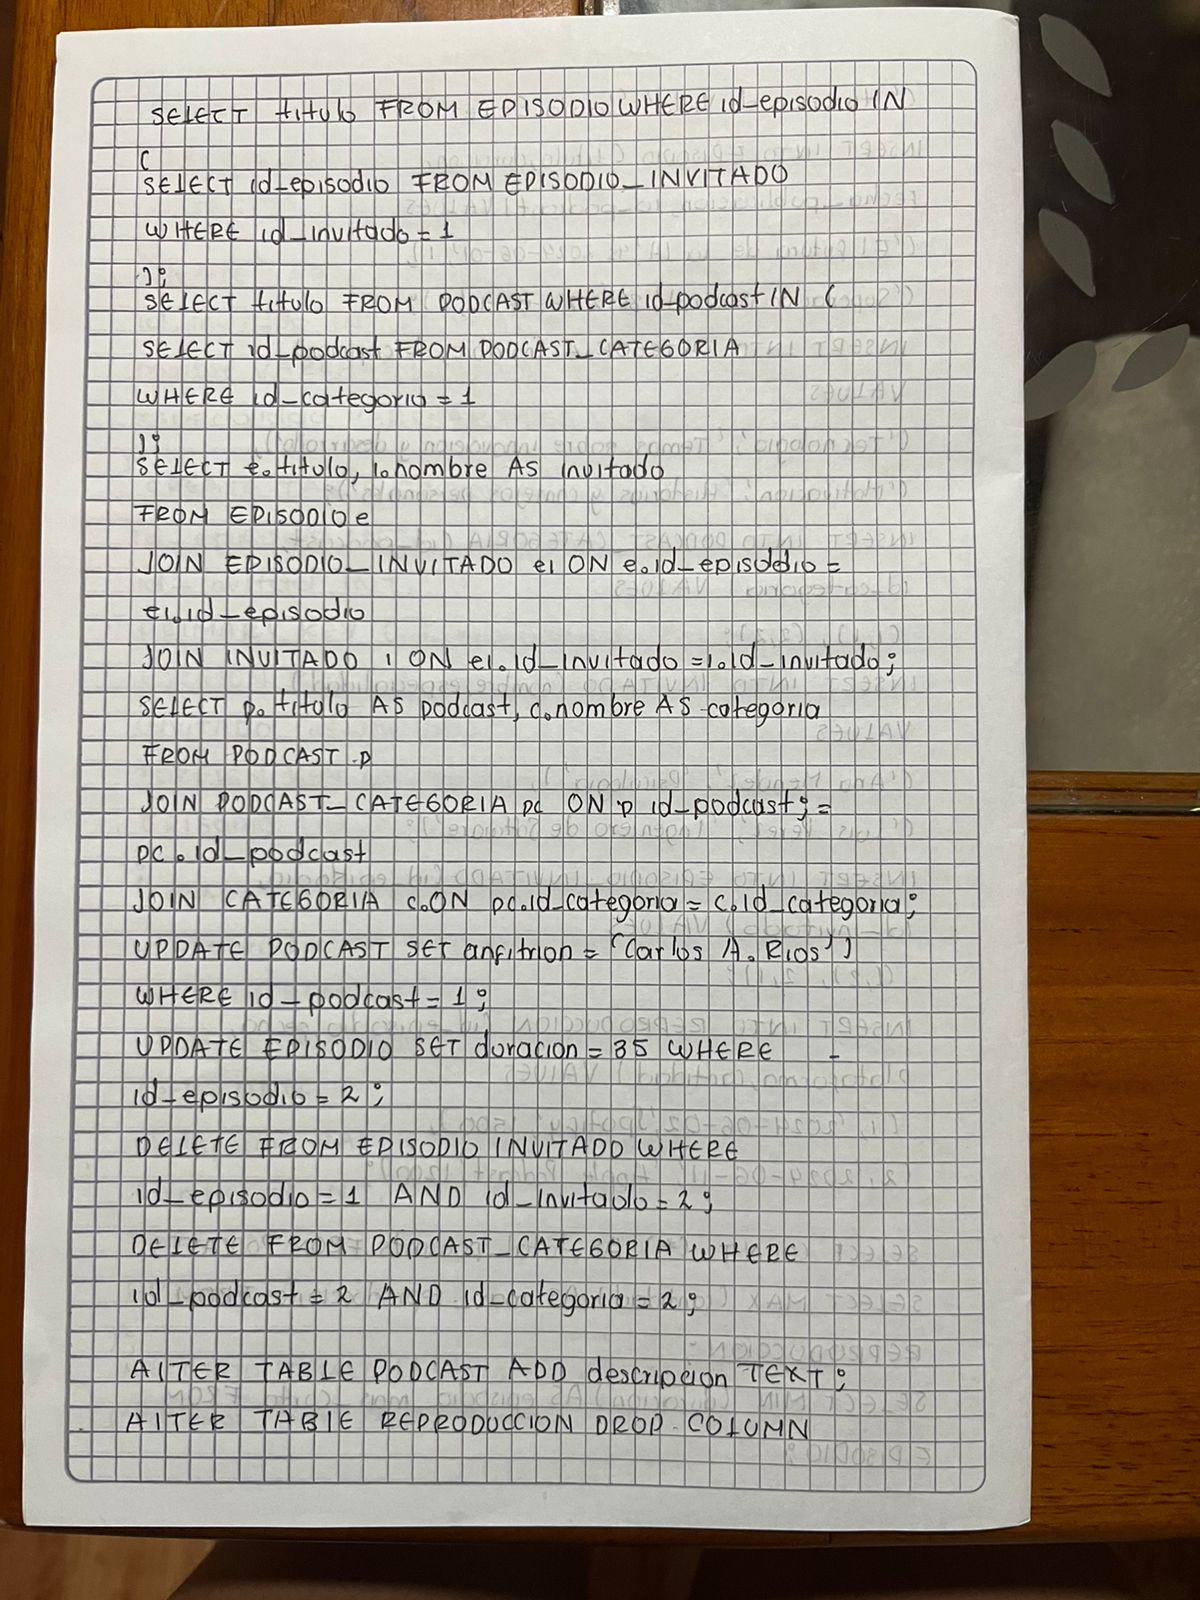 SELECT titulo FROM EPISODIO WHERE id_episodio IN
(
SELECT id_episodio FROM EPISODIO_INVITADO
WHERE id_invitado = 1
);
SELECT titulo FROM PODCAST WHERE id_podcast IN (
SELECT id_podcast FROM PODCAST_CATEGORIA
WHERE id_categoria = 1
);
SELECT e.titulo, i.nombre AS invitado
FROM EPISODIO e
JOIN EPISODIO_INVITADO ei ON e.id_episodio =
ei.id_episodio
JOIN INVITADO i ON ei.id_invitado = i.id_invitado;
SELECT p.titulo AS podcast, c.nombre AS categoria
FROM PODCAST p
JOIN PODCAST_CATEGORIA pc ON p id_podcast; =
pc.id_podcast
JOIN CATEGORIA c.ON pc.id_categoria = c.id_categoria;
UPDATE PODCAST SET anfitrion = 'Carlos A. Rios')
WHERE id_podcast = 1;
UPDATE EPISODIO SET duracion = 35 WHERE -
id_episodio = 2;
DELETE FROM EPISODIO INVITADO WHERE
id_episodio = 1 AND id_invitado = 2;
DELETE FROM PODCAST_CATEGORIA WHERE
id_podcast = 2 AND id_categoria = 2;
ALTER TABLE PODCAST ADD descripcion TEXT;
ALTER TABLE REPRODUCCION DROP COLUMN